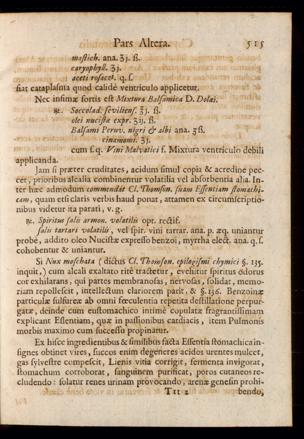 Pars Altera. 515
mastich. ana. ʒj. ß.
caryophyll. ʒj.
aceti rosacei. q. ſ.
fiat cataplaſma quod calidè ventriculo applicetur.
Nec infimæ fortis eſt Mixtura Balſamica D. Dolæi.
℞. Succolad. ſevilienſ. ʒj. ß.
olei nuciſtæ expr. ʒij. ß.
Balſami Peruv. nigri & albi ana. ʒß.
cinamomi. ʒj.
cum ſ. q. Vini Malvatici f. Mixtura ventriculo debili
applicanda.
Jam ſi præter cruditates, acidum ſimul copia & acredine pec-
cet, prioribus alcalia combinentur volatilia vel abſorbentia alia. In-
ter hæc admodum commendat Cl. Thomſon. ſuam Eſſentiam ſtomachi-
cam, quam etſi claris verbis haud ponat, attamen ex circumſcriptio-
nibus videtur ita parati, v. g.
℞. Spiritus ſalis armon. volatilis opt. rectif.
ſalis tartari volatilis, vel ſpir. vini tartar. ana. p. æq. uniantur
probè, addito oleo Nuciſtæ expreſſo benzoi, myrrha elect. ana. q. ſ.
cohobentur & uniantur.
Si Nux moſchata (dictus Cl. Thomſon. epilogiſmi chymici §. 135.
inquit,) cum alcali exaltato ritè tractetur, evehitur ſpiritus odorus
cor exhilarans, qui partes membranoſas, nervoſas, ſolidat, memo-
riam repoleſcit, intellectum clariorem parit, & §. 136. Benzoinæ
particulæ ſulfureæ ab omni fœculentia repetita deſtillatione perpur-
gatæ, deinde cum euſtomachico intimè copulatæ fragrantiſſimam
explicant Eſſentiam, quæ in paſſionibus cardiacis, item Pulmonis
morbis maximo cum ſucceſſu propinatur.
Ex hiſce ingredientibus & ſimilibus facta Eſſentia ſtomachica in-
ſignes obtinet vires, ſuccos enim degeneres acidos urentes mulcet,
gas ſylveſtre compeſcit, Lienis vitia corrigit, fermenta invigorat,
ſtomachum corroborat, ſanguinem purificat, poros cutaneos re-
cludendo: ſolatur renes urinam provocando, arenæ geneſin prohi-
Ttt 2 bendo,